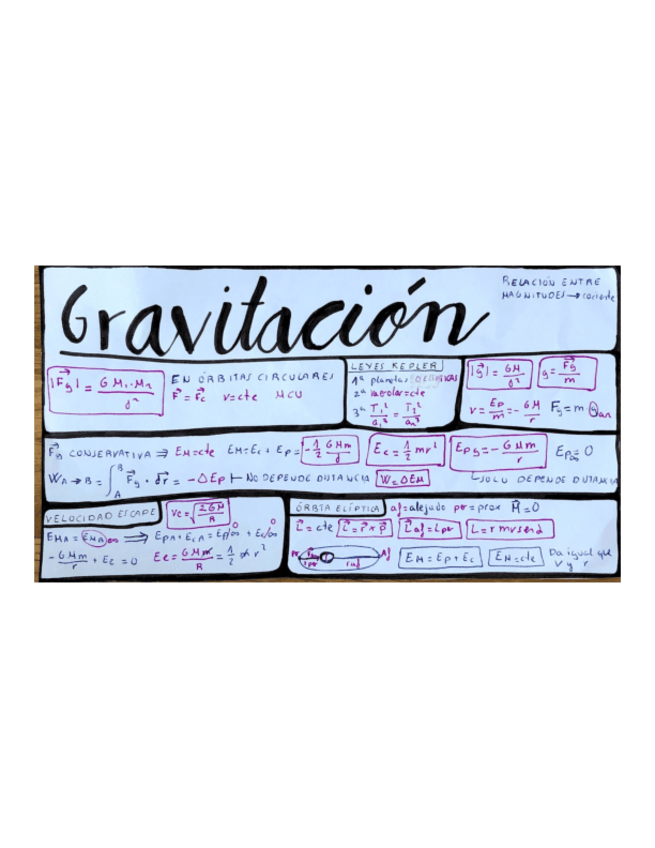 Gravitación
RELACIÓN ENTRE
MAGNITUDES → corriente
|F⃗g| = G M₁·M₂ / d²
EN ÓRBITAS CIRCULARES
F⃗ = F⃗c v=cte MCU
LEYES KEPLER
1ª planetas O. ELÍPTICAS
2ª aerolar=cte
3ª T₁²/a₁³ = T₂²/a₂³
|g⃗| = GM/d²
g = F⃗g/m
V = Ep/m = -GM/r Fg = m·g
F⃗g CONSERVATIVA ⇒ EM=cte EM=Ec+Ep= -1/2 GMm/d
Ec = 1/2 mv²
Epg = - GMm/r
Ep∞ = 0
WA→B = ∫ᴬᴮ F⃗g · dr⃗ = -ΔEp ⊢ NO DEPENDE DISTANCIA W=ΔEM
SOLO DEPENDE DISTANCIA
VELOCIDAD ESCAPE
Ve = √2GM/R
EMA = EM∞ ⟹ EpA + EcA = Ep∞ + Ec∞ 0 0
- GMm/r + Ec = 0 Ec = GMm/R = 1/2 m v²
ÓRBITA ELÍPTICA af=alejado per=prox M⃗=0
L⃗ = cte L⃗ = r⃗ × p⃗ L⃗af = Lper L = r m v send
Af
EM = Ep + Ec EM = cte Da igual que
v y r